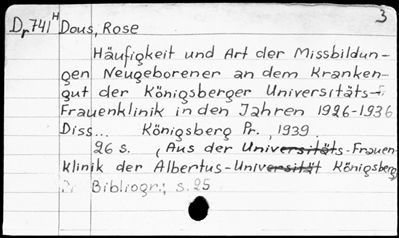 3
Dr741H Dous, Rose
Häufigkeit und Art der Missbildun-
gen Neugeborener an dem Kranken-
gut der Königsberger Universitäts-
Frauenklinik in den Jahren 1926-1936
Diss... Königsberg Pr., 1939.
26 s. (Aus der Universitäts-Frauen-
klinik der Albertus-Universität Königsberg
Bibliogr.; s. 25